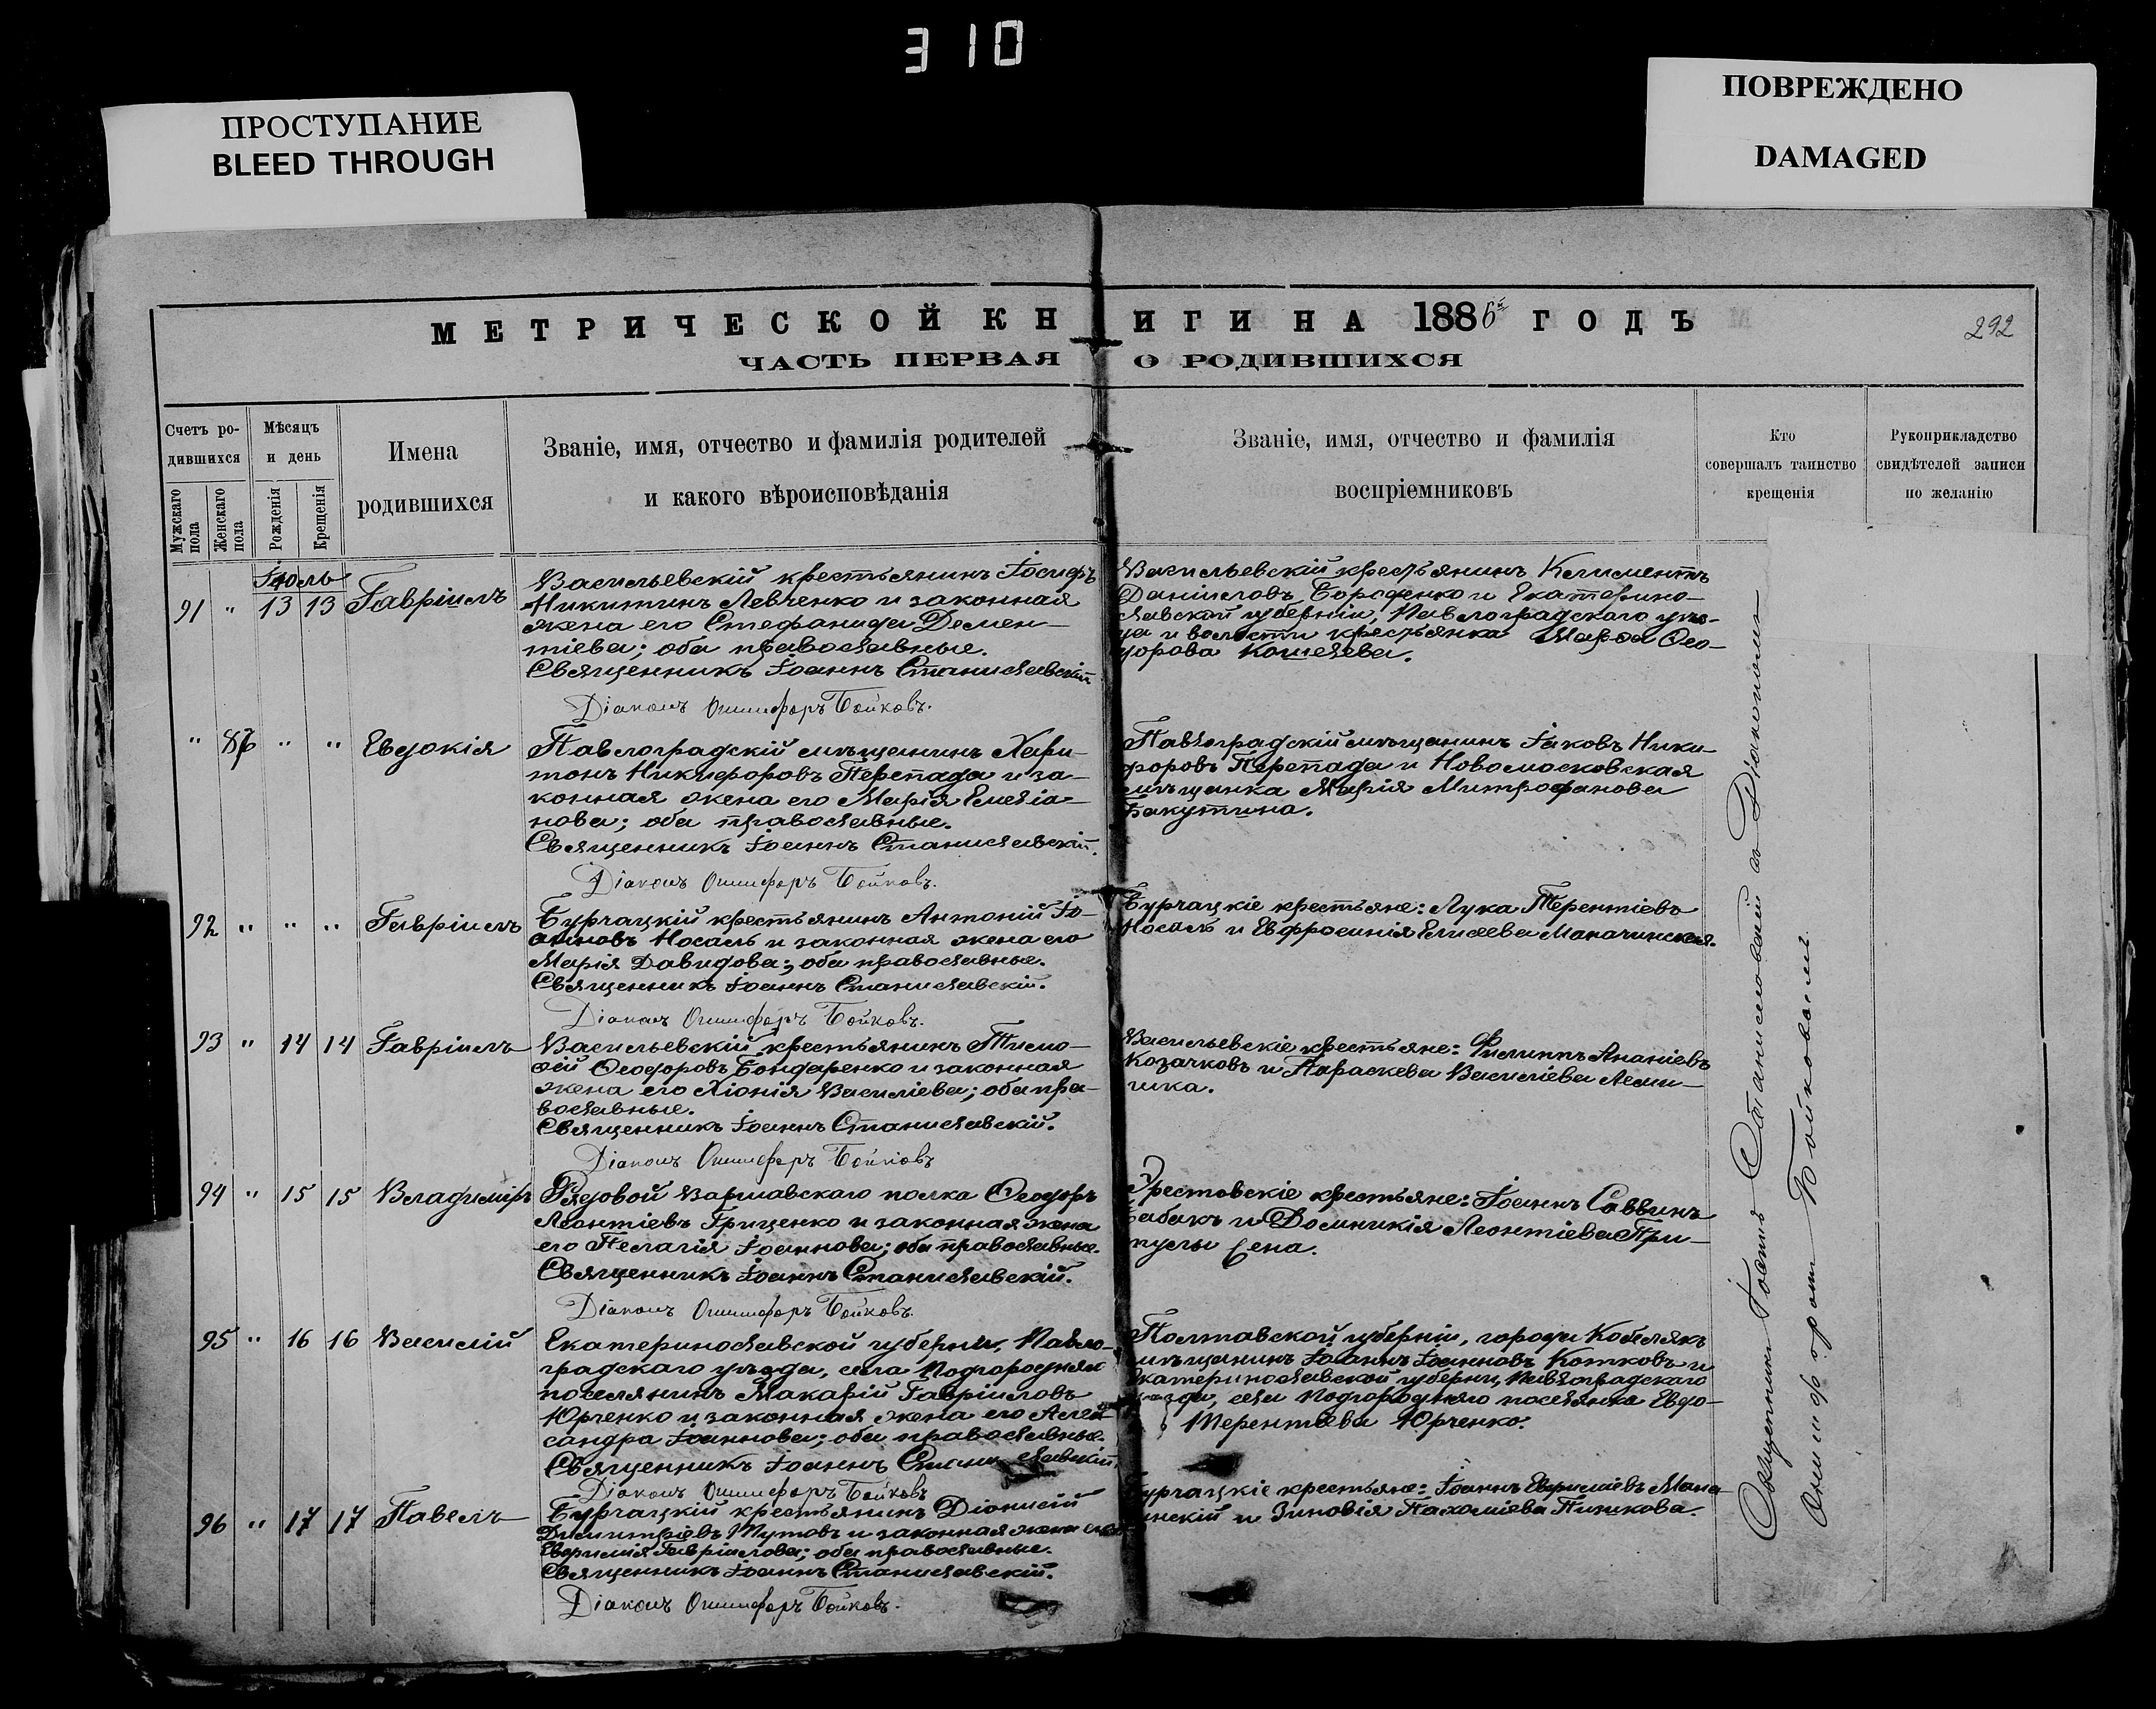 310
ПРОСТУПАНИЕ
BLEED THROUGH
ПОВРЕЖДЕНО
DAMAGED
МЕТРИЧЕСКОЙ КНИГИ НА 1886й ГОДЪ
292
ЧАСТЬ ПЕРВАЯ О РОДИВШИХСЯ
Счетъ ро-
дившихся
Мужскаго пола
Женскаго пола
Мѣсяцъ
и день
Рожденія
Крещенія
Имена
родившихся
Званіе, имя, отчество и фамилія родителей
и какого вѣроисповѣданія
Званіе, имя, отчество и фамилія
воспріемниковъ
Кто
совершалъ таинство
крещенія
Рукоприкладство
свидѣтелей записи
по желанію
Іюль
91 " 13 13 Гавріилъ
Васильевскій крестьянинъ Іосифъ
Никитинъ Левченко и законная
жена его Стефанида Демен-
тіева; оба православные.
Священникъ Іоаннъ Станиславскій
Діаконъ Онисифоръ Бойковъ.
Васильевскій крестьянинъ Климентъ
Даніиловъ Бороденко и Екатерино-
славской губерніи, Павлоградскаго уѣз-
да и волости крестьянка Марѳа Ѳео-
дорова Кошелева.
" 86 " " Евдокія
Павлоградскій мѣщанинъ Хари-
тонъ Никифоровъ Перепада и за-
конная жена его Марія Емеліа-
нова; оба православные.
Священникъ Іоаннъ Станиславскій.
Діаконъ Онисифоръ Бойковъ.
Павлоградскій мѣщанинъ Іаковъ Ники-
форовъ Перепада и Новомосковская
мѣщанка Марія Митрофанова
Бакутина.
92 " " " Гавріилъ
Бурчацкій крестьянинъ Антоній Іо-
анновъ Носаль и законная жена его
Марія Давидова; оба православные.
Священникъ Іоаннъ Станиславскій.
Діаконъ Онисифоръ Бойковъ.
Бурчацкіе крестьяне: Лука Терентіевъ
Носаль и Евфросинія Елисеева Маначинская.
93 " 14 14 Гавріилъ
Васильевскій крестьянинъ Тимо-
ѳей Ѳеодоровъ Бондаренко и законная
жена его Хіонія Василіева; оба пра-
вославные.
Священникъ Іоаннъ Станиславскій.
Діаконъ Онисифоръ Бойковъ
Васильевскіе крестьяне: Филиппъ Ананіевъ
Козачковъ и Параскева Василіева Леми-
шка.
94 " 15 15 Владиміръ
Рядовой Варшавскаго полка Ѳеодоръ
Леонтіевъ Гриценко и законная жена
его Пелагія Іоаннова; оба православные.
Священникъ Іоаннъ Станиславскій.
Діаконъ Онисифоръ Бойковъ.
Эрестовскіе крестьяне: Іоаннъ Саввинъ
Бабакъ и Домникія Леонтіева При-
пусты Сена.
95 " 16 16 Василій
Екатеринославской губерніи, Павло-
градскаго уѣзда, села Подгородняго
поселянинъ Макарій Гавріиловъ
Юрченко и законная жена его Алек-
сандра Іоаннова; оба православные.
Священникъ Іоаннъ Станиславскій.
Діаконъ Онисифоръ Бойковъ
Полтавской губерніи, города Кобелякъ
мѣщанинъ Іоаннъ Іоанновъ Котковъ и
Екатеринославской губерніи, Павлоградскаго
уѣзда, села Подгородняго поселянка Евдо-
Терентіева Юрченко.
96 " 17 17 Павелъ
Бурчацкій крестьянинъ Діонисій
Димитріевъ Шутовъ и законная жена его
Евфимія Гавріилова; оба православные.
Священникъ Іоаннъ Станиславскій.
Діаконъ Онисифоръ Бойковъ.
Бурчацкіе крестьяне: Іоаннъ Евфиміевъ Мана-
чинскій и Зиновія Пахоміева Пишкова.
Священникъ Іоаннъ Станиславскій съ Діакономъ
Онисифоромъ Бойковымъ.